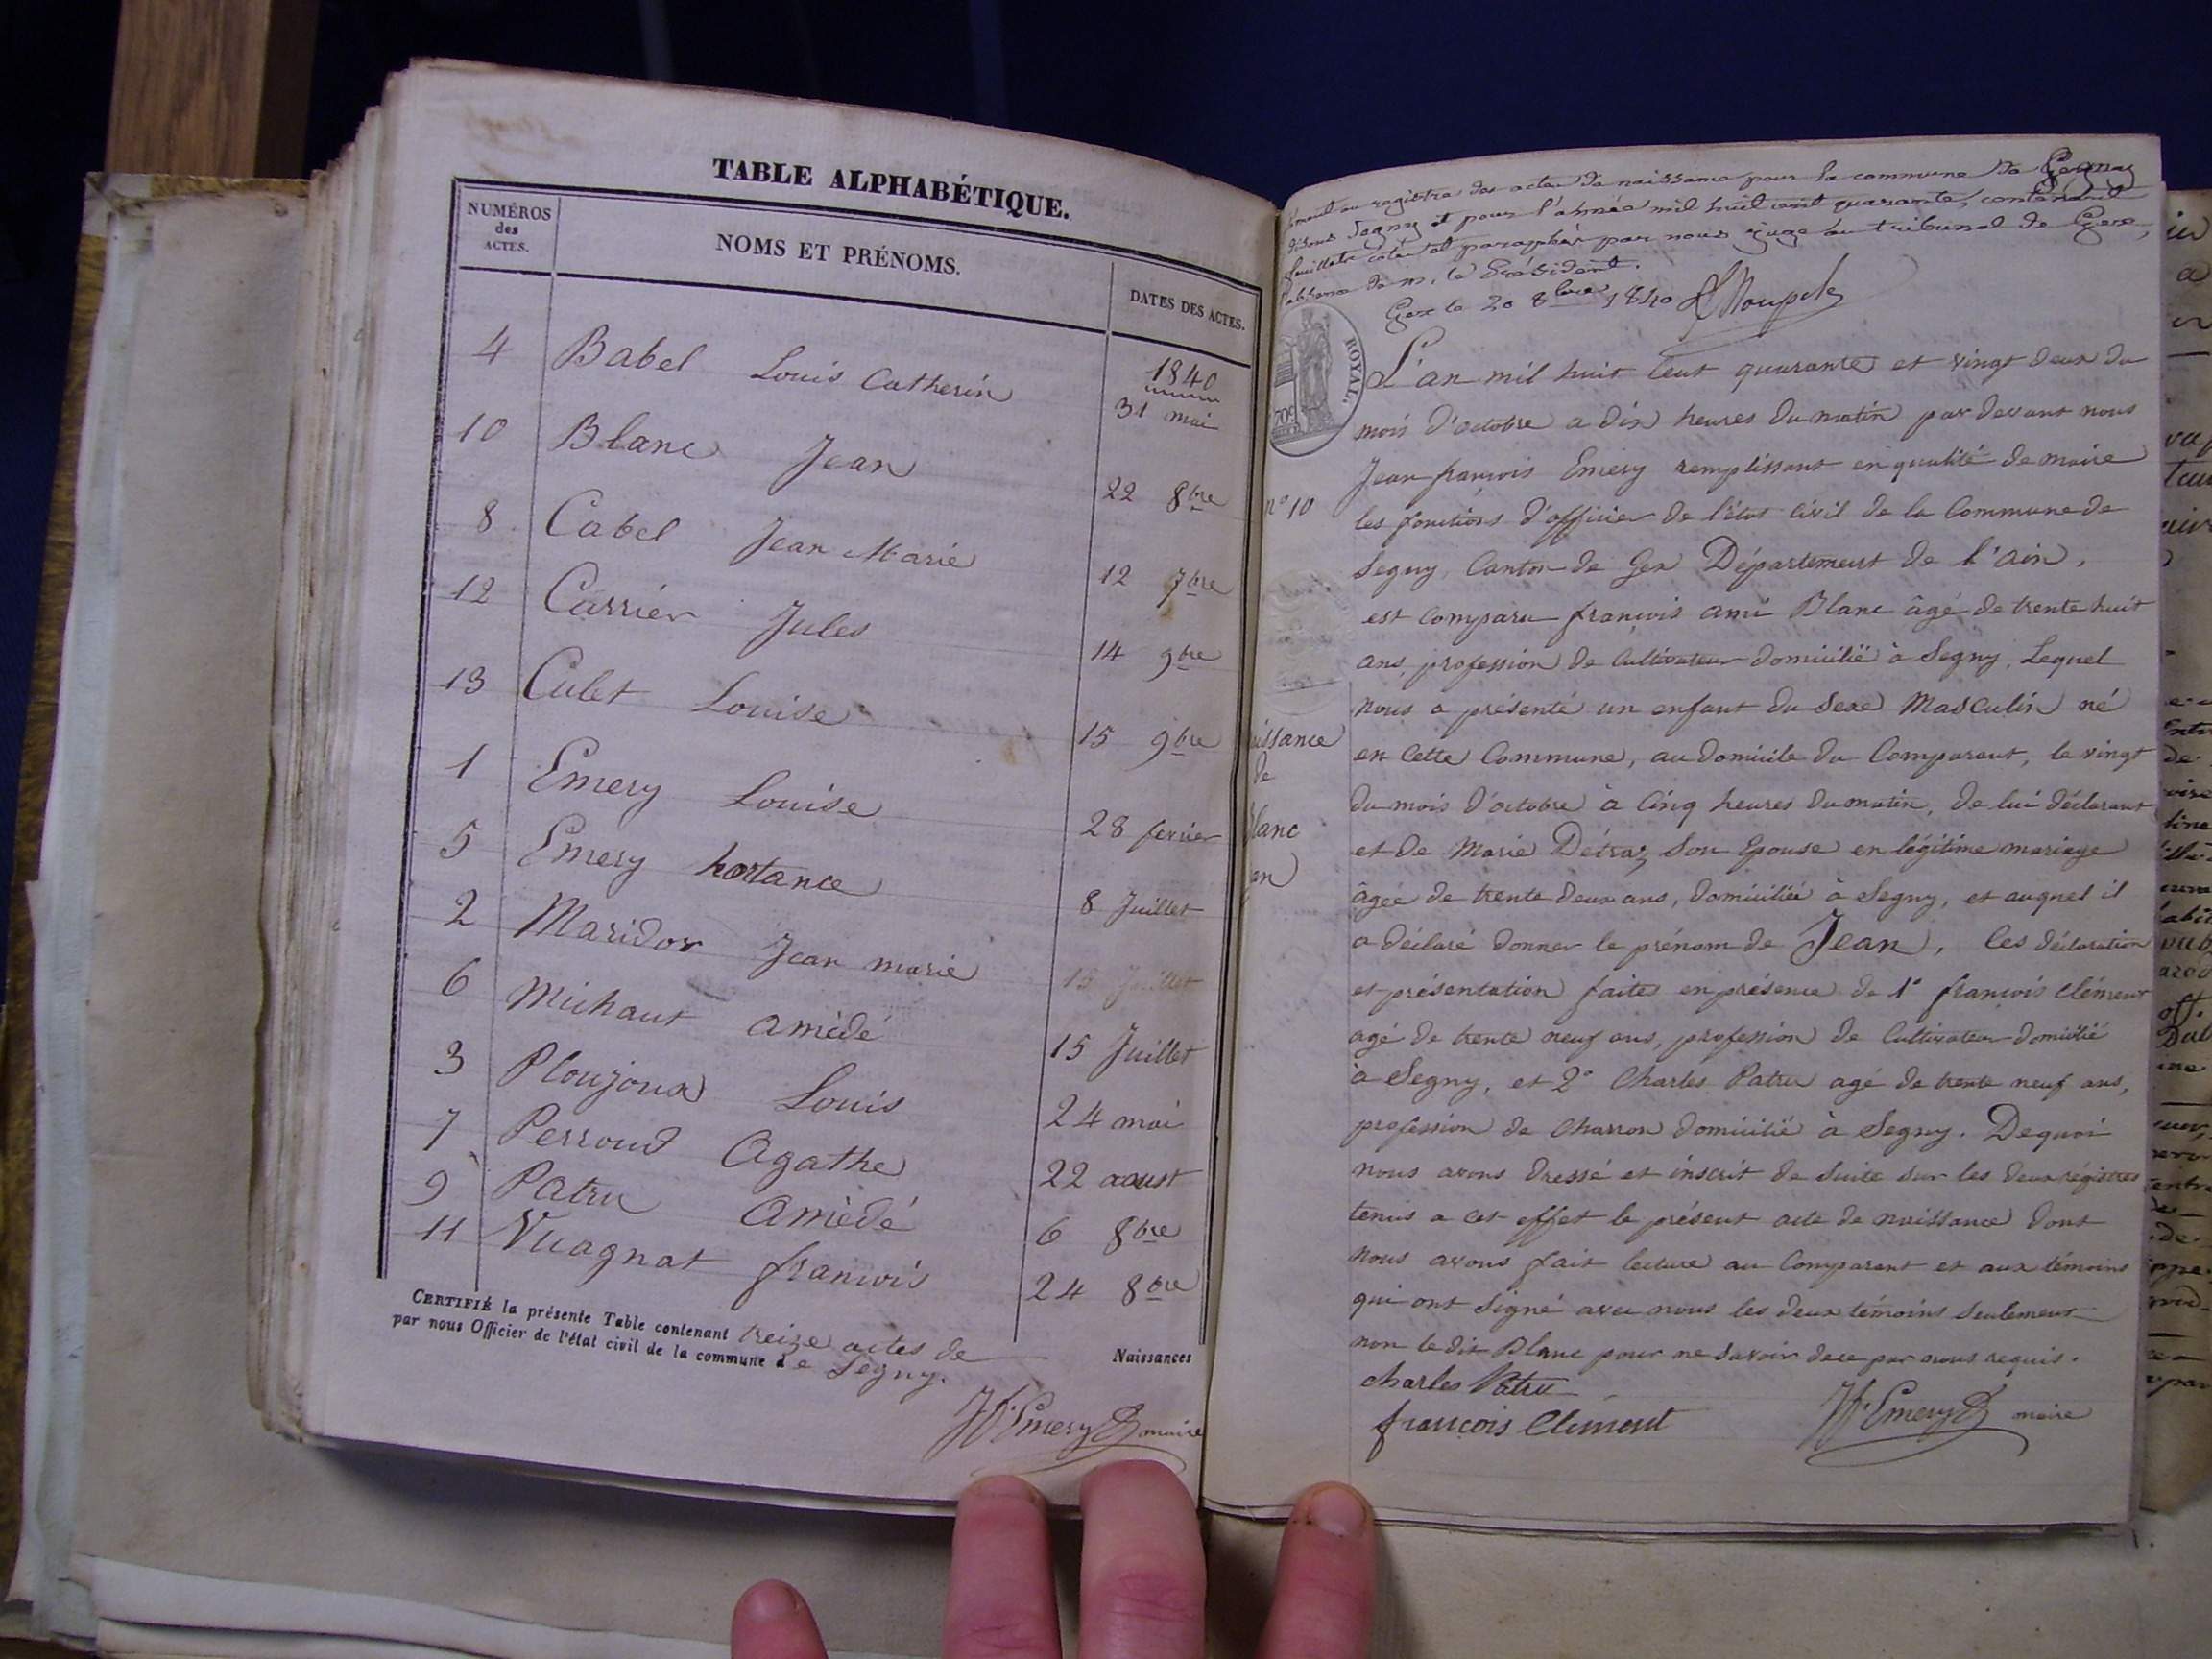 TABLE ALPHABÉTIQUE.
NUMÉROS
des
ACTES.
NOMS ET PRÉNOMS.
DATES DES ACTES.
1840
4 Babel Louis Catherin 31 mai
10 Blanc Jean 22 8bre
8 Cabel Jean Marie 12 7bre
12 Carrier Jules 14 9bre
13 Culet Louise 15 9bre
1 Emery Louise 28 fevrier
5 Emery hortance 8 Juillet
2 Maridor Jean marie 15 Juillet
6 Michaut amédé 15 Juillet
3 Ploujoux Louis 24 mai
7 Perroud Agathe 22 aoust
9 Patru Amédé 6 8bre
11 Vuagnat francois 24 8bre
CERTIFIÉ la présente Table contenant treize actes de Naissances
par nous Officier de l'état civil de la commune de Segny.
JF. Emery maire
au registre des actes de naissance pour la commune de
disons Segny et pour l'année mil huit cent quarante, contenant
feuillets coté et paraphés par nous juge au tribunal de Gex,
de m. le Président.
Gex le 20 8bre 1840
ROYAL.
709
L'an mil huit Cent quarante et vingt deux du
mois d'octobre a dix heures du matin par devant nous
Jean francois Emery remplissant en qualité de maire
n° 10
les fonctions d'officier de l'état civil de la Commune de
Segny, Canton de Gex Département de l'ain,
est comparu francois ami Blanc âgé de trente huit
ans, profession de Cultivateur domicilié à Segny, Lequel
nous a présenté un enfant du Sexe Masculin né
issance
de
lanc
an
en Cette Commune, au domicile du Comparant, le vingt
du mois d'octobre à Cinq heures du matin, de lui déclarant
et de Marie Détraz Son Epouse en légitime mariage
âgée de trente deux ans, domiciliée à Segny, et auquel il
a déclaré donner le prénom de Jean, Ces déclaration
et présentation faites en présence de 1° francois Clément
agé de trente neuf ans, profession de Cultivateur domicilié
à Segny, et 2° Charles Patru agé de trente neuf ans,
profession de Charron domicilié à Segny. Dequoi
nous avons dressé et inscrit de Suite sur les deux régistres
tenus a cet effet le présent acte de naissance dont
nous avons fait lecture au Comparant et aux témoins
qui ont Signé avec nous les deux témoins Seulement
non le dit Blanc pour ne Savoir de ce par nous requis.
charles Patru
françois Clément
JF. Emery maire